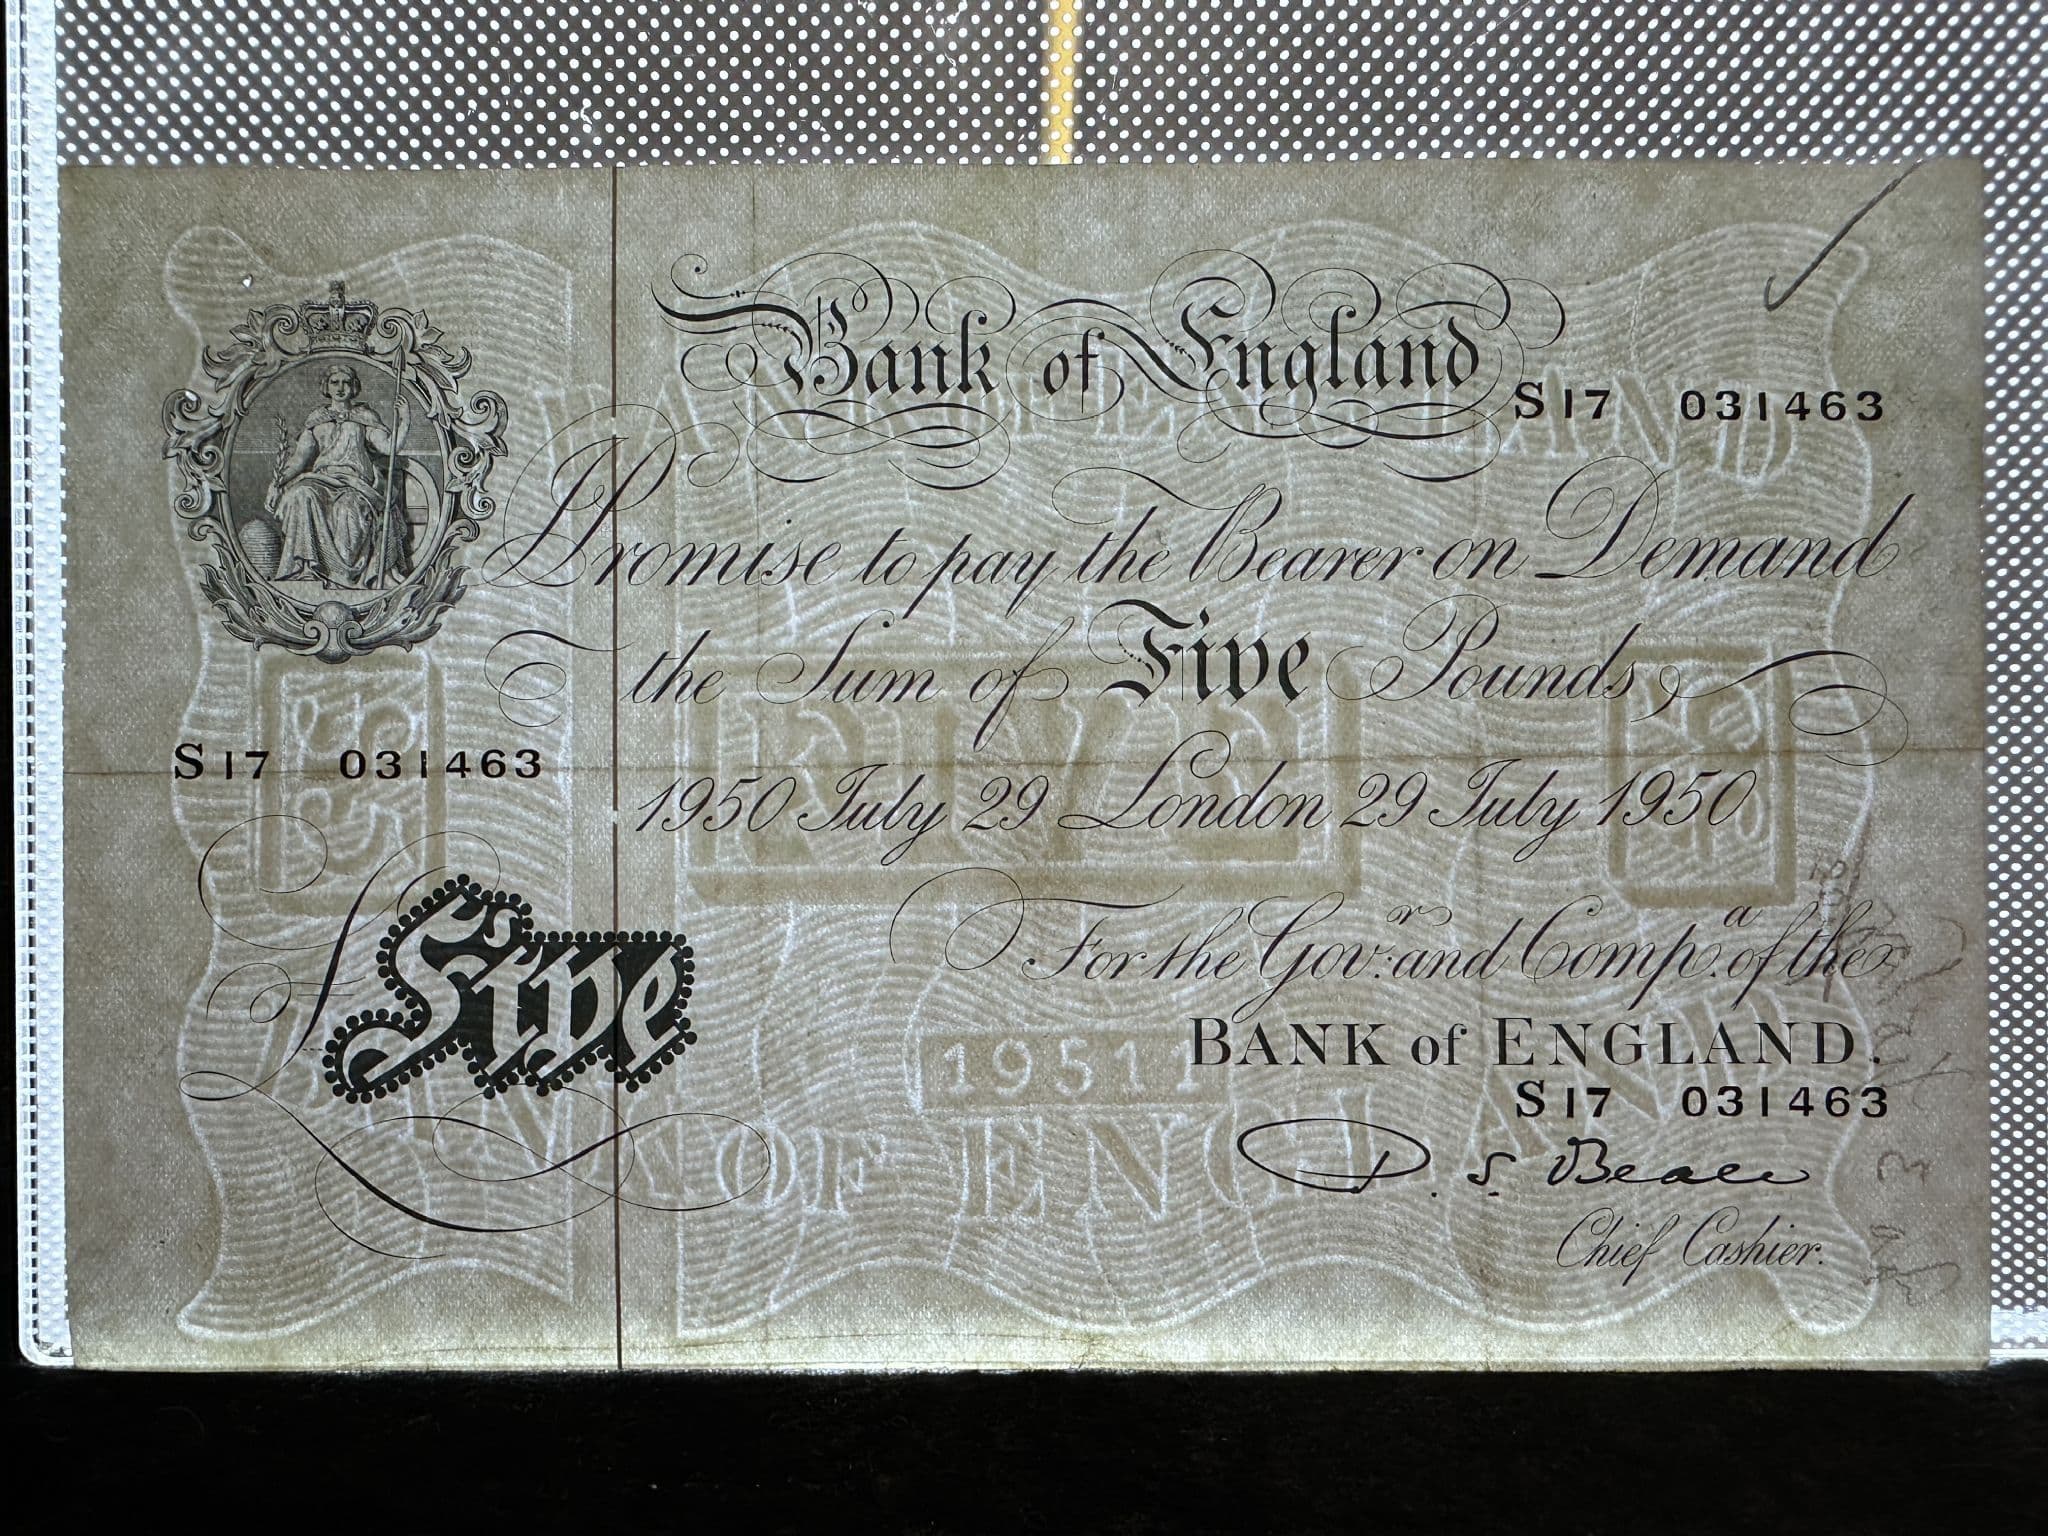 Bank of England
S17 031463
BANK OF ENGLAND
I Promise to pay the Bearer on Demand
the Sum of Five Pounds
£5
FIVE
S17 031463
1950 July 29 London 29 July 1950
£ Five
For the Gov:r and Comp.a of the
BANK of ENGLAND.
1951
S17 031463
BANK OF ENGLAND
P. S. Beale
Chief Cashier.